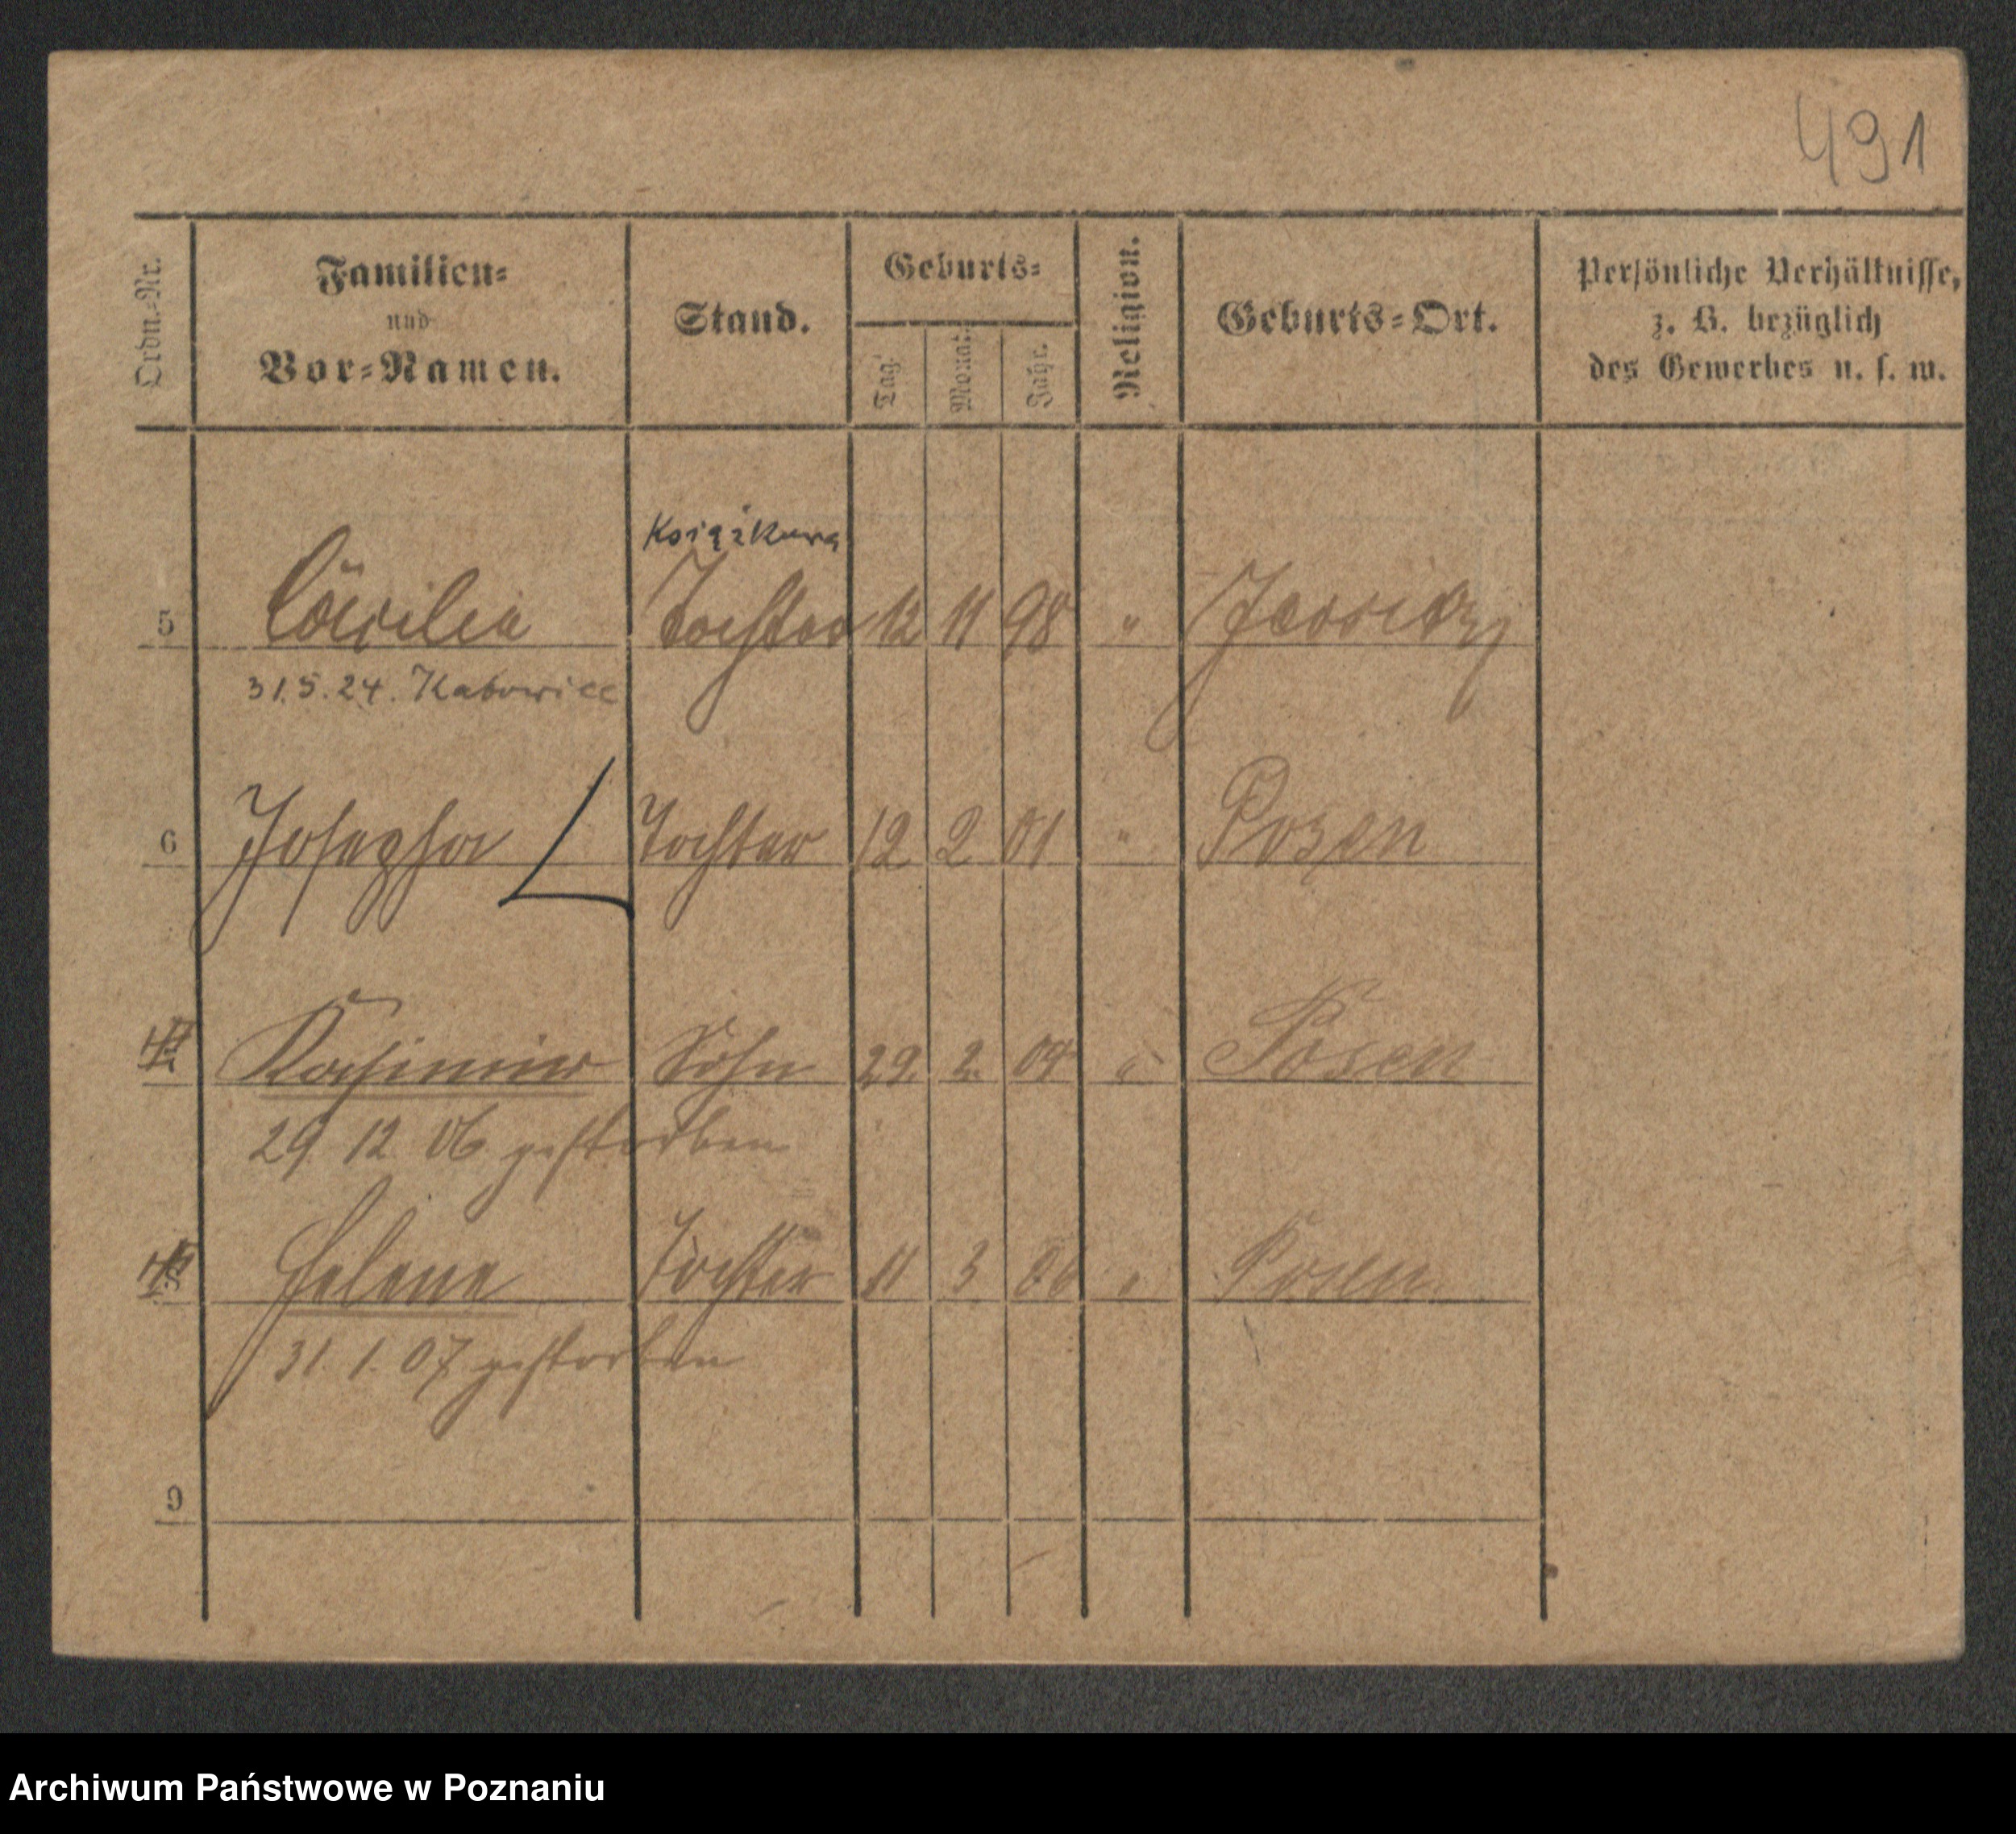 491
Ordn.-Nr.
Familien-
und
Vor-Namen.
Stand.
Geburts-
Tag.
Monat.
Jahr.
Religion.
Geburts-Ort.
Persönliche Verhältnisse,
z. B. bezüglich
des Gewerbes u. s. w.
Książkowa
5 Cäcilia Tochter 12 11 98 "
31.5.24. Katowice
6 Josepha Tochter 12 2 01 " Posen
Kasimir Sohn 29. 2. 04 " Posen
29 12 06 gestorben
Helene Tochter 11 3 06 " Posen
31. 1. 07 gestorben
9
Archiwum Państwowe w Poznaniu